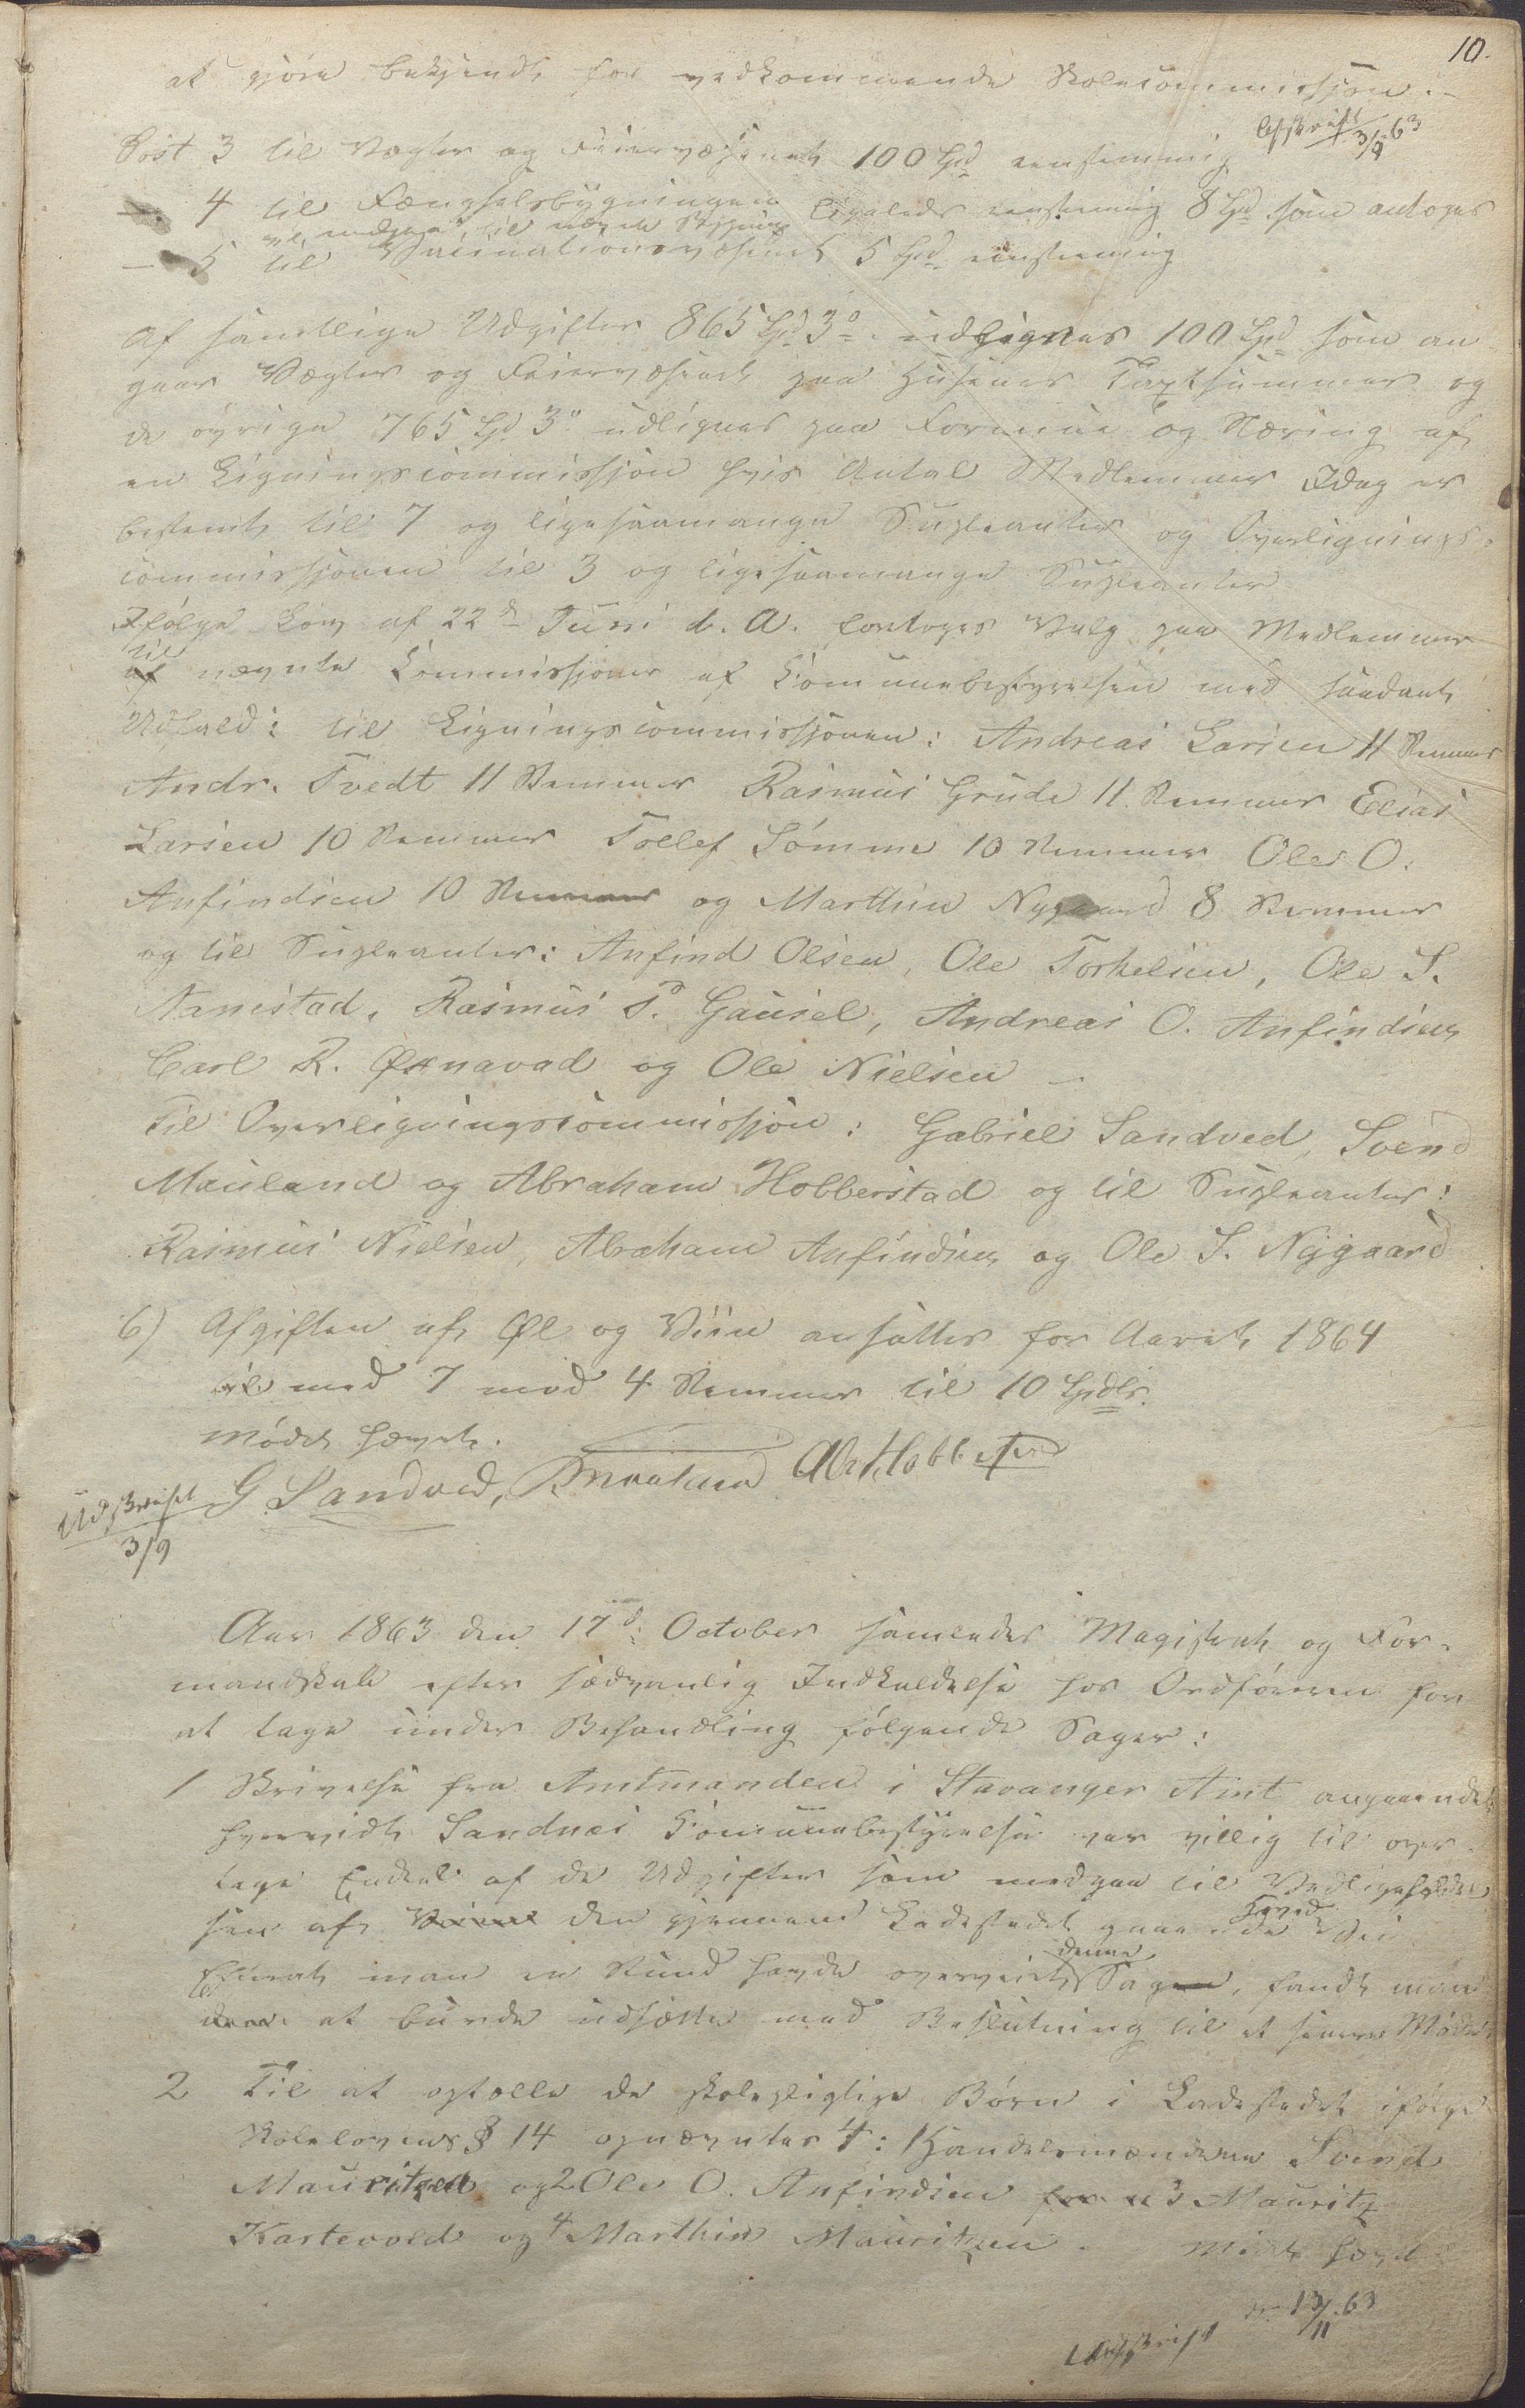 10.
at gjöre bekjendt for vedkommende Skolecommissjon.-
Udskrift 3/9 63
Post 3 til Vægter og Feiervæsenet 100 Spd eenstemmig
— 4 til Fængselsbygningen ligeledes eenstemmig 8 Spd. som antoges
vil medgaa til nævnte Bygning
— 5 til Vaccinationsvæsenet 5 Spd. eenstemmig
Af samtlige Udgifter 865 Spd 3 udlignes 100 Spd som an
gaar Vægter og Feiervæsenet paa Husenes Taxtsummer og
de övrige 765 Spd 3 udlignes paa Formue og Næring af
en Ligningscommissjon hvis Antal Medlemmer Idag er
bestemt til 7 og ligesaamange Supleanter og Overlignings-
commissjonen til 3 og ligesaamange Supleanter
Ifölge Lov af 22de Juni d. A. foretoges Valg paa Medlemmer
til
af nævnte Commissjoner af Communebestyrelsen med saadant
Udfald: til Ligningscommissjonen: Andreas Larsen 11 Stemmer
Andr. Tvedt 11 Stemmer Rasmus Grude 11. Stemmer Elias
Larsen 10 Stemmer Tollef Sömme 10 Stemmer Ole O.
Anfindsen 10 Stemmer og Marthin Nygaard 8 Stemmer
og til Supleanter: Anfind Olsen, Ole Torkelsen, Ole S.
Rasmus P. Gausel, Andreas O. Anfindsen
Carl R. Øxnavad og Ole Nielsen —
Til Overligningscommissjon: Gabriel Sandved, Svend
Mauland og Abraham Hobberstad og til Supleanter:
Rasmus Nielsen, Abraham Anfindsen og Ole S. Nygaard
6) Afgiften af Øl og Viin ansattes for Aaret 1864
med 7 mod 4 Stemmer til 10 Spdlr.
Mödet hævet.
G. Sandved, Mauland Abr Hobberstad
Udskrift
3/9
Aar 1863 den 17d: October samledes Magistrat og For-
mandskab efter sædvanlig Indkaldelse hos Ordföreren for
at tage under Behandling fölgende Sager:
1 Skrivelse fra Amtmanden i Stavanger Amt angaaende
hvorvidt Sandnæs Communebestyrelse var villig til over-
tage Endeel af de Udgifter som medgaa til Vedligeholdel
sen af Veiene den gjennem Ladestedet gaaende Hoved Vei
denne
Efterat man en Stund havde overveiet Sagen, fandt man
at burde udsætte med Beslutning til et senere Möde.
2 Til at optælle de skolepligtige Börn i Ladestedet ifölge
Skolelovens § 14 opnævntes 4: 1 Handelsmændene Svend
Mauritzen og 2 Ole O. Anfindsen 3 Mauritz
Kartevold og 4 Marthin Mauritzen. Mödet hævet
Udskrift 13/11 63